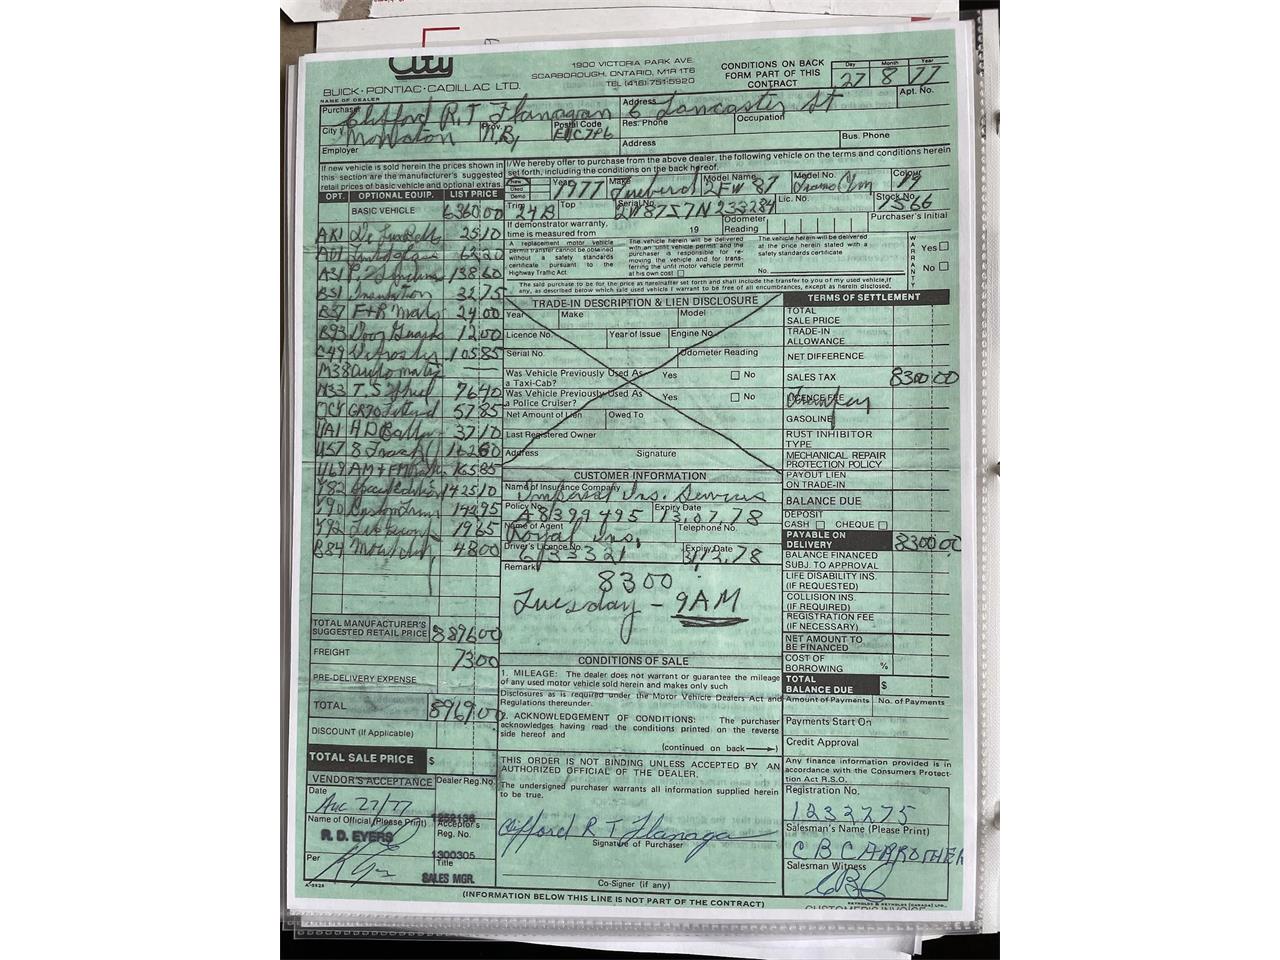 City
BUICK · PONTIAC · CADILLAC LTD.
NAME OF DEALER
1900 VICTORIA PARK AVE.
SCARBOROUGH, ONTARIO, M1R 1T6
TEL (416) 751-5920
CONDITIONS ON BACK
FORM PART OF THIS
CONTRACT
Day Month Year
27 8 77
Purchaser Clifford R.T Flanagan
Address 6 Lancaster St
Apt. No.
City Moncton Prov. N.B, Postal Code E1C7P6
Res. Phone
Occupation
Employer
Address
Bus. Phone
If new vehicle is sold herein the prices shown in
this section are the manufacturer's suggested
retail prices of basic vehicle and optional extras.
I/We hereby offer to purchase from the above dealer, the following vehicle on the terms and conditions herein
set forth, including the conditions on the back hereof.
New Used Demo
Year 1977 Make Firebird Model Name 2FW87 Model No. Trans Am Colour 19
Trim 24B Top Serial No. 2W87Z7N233284 Lic. No. Stock No. 1566
If demonstrator warranty,
time is measured from 19
Odometer
Reading
Purchaser's Initial
A replacement motor vehicle
permit transfer cannot be obtained
without a safety standards
certificate pursuant to the
Highway Traffic Act
The vehicle herein will be delivered
with an unfit vehicle permit and the
purchaser is responsible for re-
moving the vehicle and for trans-
ferring the unfit motor vehicle permit
at his own cost
The vehicle herein will be delivered
at the price herein stated with a
safety standards certificate
No.
WARRANTY
Yes
No
The said purchase to be for the price as hereinafter set forth and shall include the transfer to you of my used vehicle, if
any, as described below which said used vehicle I warrant to be free of all encumbrances, except as herein disclosed.
OPT. OPTIONAL EQUIP. LIST PRICE
BASIC VEHICLE 6360 00
AK1 De Lux Belt 25 10
A01 63 20
A31 138 60
B51 Insulation 32 75
B37 F+R Mats 24 00
B93 Door Guards 12 00
C49 105 85
M38 automatic
N33 T.S Wheel 76 40
QCY GR70 Lettered 57 85
UA1 H D Battery 37 10
U57 8 Track
U69 AM+FM 165 85
Y82 1425 10
Y90 Custom Trim 142 95
Y92 19 65
B84 48 00
TOTAL MANUFACTURER'S
SUGGESTED RETAIL PRICE 8896 00
FREIGHT 73 00
PRE-DELIVERY EXPENSE
TOTAL 8969 00
DISCOUNT (If Applicable)
TOTAL SALE PRICE $
TRADE-IN DESCRIPTION & LIEN DISCLOSURE
Year Make Model
Licence No. Year of Issue Engine No.
Serial No. Odometer Reading
Was Vehicle Previously Used As
a Taxi-Cab? Yes No
Was Vehicle Previously Used As
a Police Cruiser? Yes No
Net Amount of Lien Owed To
Last Registered Owner
Address Signature
CUSTOMER INFORMATION
Name of Insurance Company
Imperial Ins. Services
Policy No. A8399495 Expiry Date 13.07.78
Name of Agent Royal Ins. Telephone No.
Driver's Licence No. 6133321 Expiry Date 31,12,78
Remarks
8300
Tuesday - 9AM
CONDITIONS OF SALE
1. MILEAGE: The dealer does not warrant or guarantee the mileage
of any used motor vehicle sold herein and makes only such
Disclosures as is required under the Motor Vehicle Dealers Act and
Regulations thereunder.
2. ACKNOWLEDGEMENT OF CONDITIONS: The purchaser
acknowledges having read the conditions printed on the reverse
side hereof and
(continued on back)
THIS ORDER IS NOT BINDING UNLESS ACCEPTED BY AN
AUTHORIZED OFFICIAL OF THE DEALER.
The undersigned purchaser warrants all information supplied herein
to be true.
Clifford R T Flanagan
Signature of Purchaser
Co-Signer (if any)
TERMS OF SETTLEMENT
TOTAL
SALE PRICE
TRADE-IN
ALLOWANCE
NET DIFFERENCE
SALES TAX 8300 00
LICENCE FEE Transfer
GASOLINE
RUST INHIBITOR
TYPE
MECHANICAL REPAIR
PROTECTION POLICY
PAYOUT LIEN
ON TRADE-IN
BALANCE DUE
DEPOSIT
CASH CHEQUE
PAYABLE ON
DELIVERY 8300 00
BALANCE FINANCED
SUBJ. TO APPROVAL
LIFE DISABILITY INS.
(IF REQUESTED)
COLLISION INS.
(IF REQUIRED)
REGISTRATION FEE
(IF NECESSARY)
NET AMOUNT TO
BE FINANCED
COST OF
BORROWING %
TOTAL
BALANCE DUE $
Amount of Payments No. of Payments
Payments Start On
Credit Approval
Any finance information provided is in
accordance with the Consumers Protect-
tion Act R.S.O.
Registration No.
1232275
Salesman's Name (Please Print)
C B CARROTHER
Salesman Witness
VENDOR'S ACCEPTANCE Dealer Reg. No.
Date Aug 27/77
1252136
Name of Official (Please Print) Acceptor's
Reg. No.
R. D. EYERS
1300305
Per Title
SALES MGR.
(INFORMATION BELOW THIS LINE IS NOT PART OF THE CONTRACT)
CUSTOMER'S INVOICE